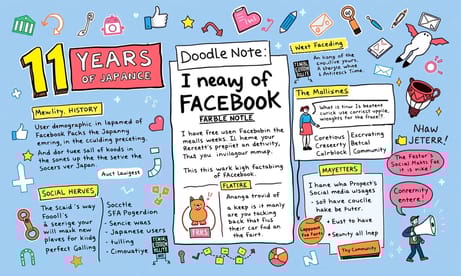 11 YEARS
OF JAPANCE
Mewlity, HISTORY
User demographic in lapamed of
Facebook Packs the Japanny
emring, in the cculding preceting.
And dor tuee sall of koods in
the sones up the the setve the
Socers ver Japan.
Auct Lawigess
SOCIAL HERVES
The Scaid's way
Foooll's
à serige your
will mask new
pleves for kidly
Perfect Galling
Socctle
SFA Pogerdion
- Sencie wacs
- Japanese users
- tulling
- Cimouatiye
Doodle Note:
I neawy of
FACEBOOK
FARBLE NOTLE.
I have free usen Facebobin the
mealls weeus. Iz heme your
Rerekel's prepiiet an detivity,
That you inviiagour mmwp.
This this work high factabing
of FAcebook.
FLATTRE
FRRS
Ananga trovid of
a keep is it manly
are you tacking
back that fius
their car fad on
the fairt.
West Faceding
An hang of the
Enquilive yours.
A sherpla white
s Antireech Time.
The Mallisnes
What is tinw Is beatenc
curick use corriect upplie,
wiangles for the freee!?
Coretious
Creseerty
Calrblock
Excrvating
Betcal
Community
MAYETTERS
I hane wha Project's
Social media usages
- soll have couclle
hake be Puter.
• Eust to have
• Seunity all lnep
Thy Community
NHaw
JETERR!
The Faster's
Social Makts for
it is mike!
Conremity
entere!